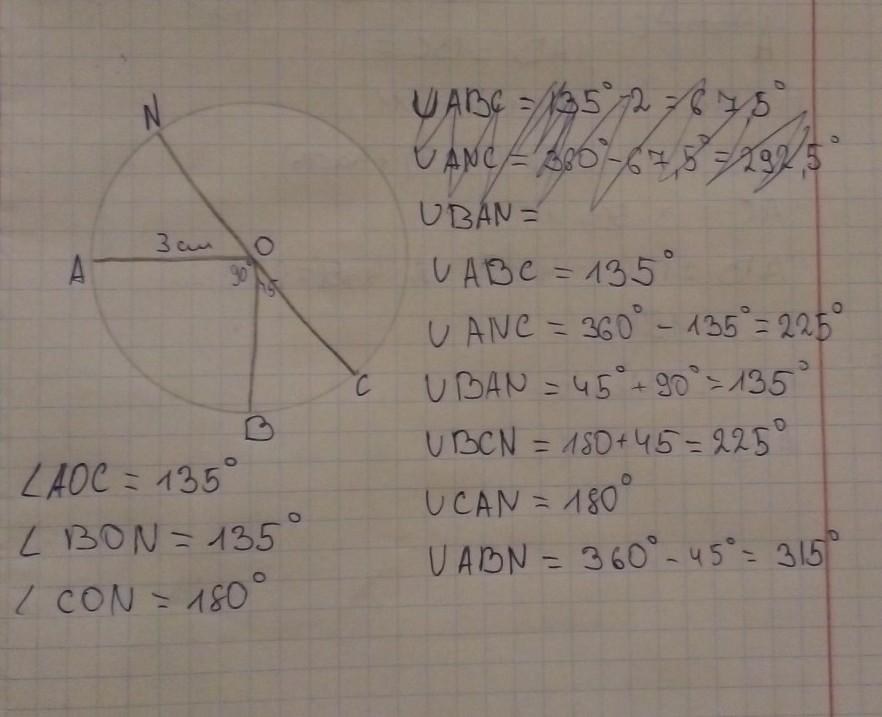 N
3 см O
A 90° 45
C
B
∠AOC = 135°
∠ BON = 135°
∠ CON = 180°
∪ABC = 135° : 2 = 67,5°
∪ANC = 360° - 67,5° = 292,5°
∪BAN =
∪ABC = 135°
∪ANC = 360° - 135° = 225°
∪BAN = 45° + 90° = 135°
∪BCN = 180 + 45 = 225°
∪CAN = 180°
∪ABN = 360° - 45° = 315°